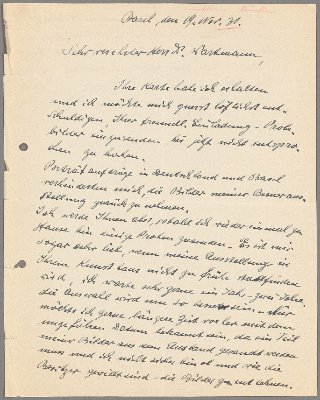 Basel, den 19. Nov. 31.
Sehr verehrter Herr Dr. Wartmann,
Ihre Karte habe ich erhalten
und ich möchte mich zuerst höflichst ent-
schuldigen, Ihrer freundl. Einladung – Probe-
bilder einzusenden bis jetzt nicht entspro-
chen zu haben.
Porträt aufträge in Deutschland und Basel
verhinderten mich, die Bilder meiner Berner aus-
stellung zurück zu nehmen.
Ich werde Ihnen aber, sobald ich wieder einmal zu
Hause bin einige Proben zusenden. – Es ist mir
sogar sehr lieb, wenn meine Ausstellung im
Zürcher Kunsthaus nicht zu frühe stattfinden
wird, ich warte sehr gerne ein Jahr – zwei Jahre,
die Auswahl wird um so besser sein. – Nur
möchte ich gerne längere Zeit vorher mit dem
ungefähren Datum bekannt sein, da ein Teil
meiner Bilder aus dem Ausland gesandt werden
muss und ich nicht sicher bin ob und wie die
Besitzer gewillt sind – die Bilder zu entlehnen.